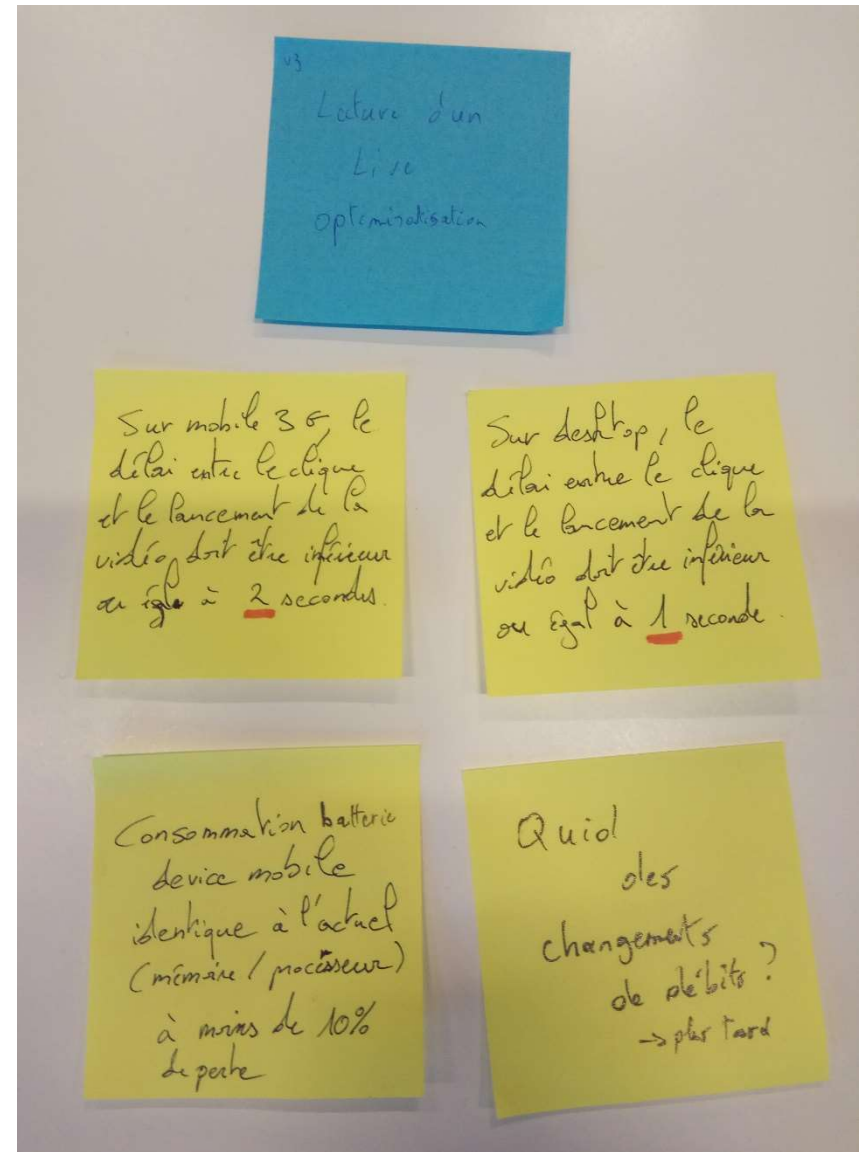 v3
Lecture d'un
Live
optimisation
Sur mobile 3G, le
délai entre le clique
et le lancement de la
vidéo doit être inférieur
ou égle à 2 secondes.
Sur desktop, le
délai entre le clique
et le lancement de la
vidéo doit être inférieur
ou égal à 1 seconde.
Consommation batterie
device mobile
identique à l'actuel
(mémoire / processeur)
à moins de 10%
de perte
Quid
des
changements
de débits ?
→ plus tard